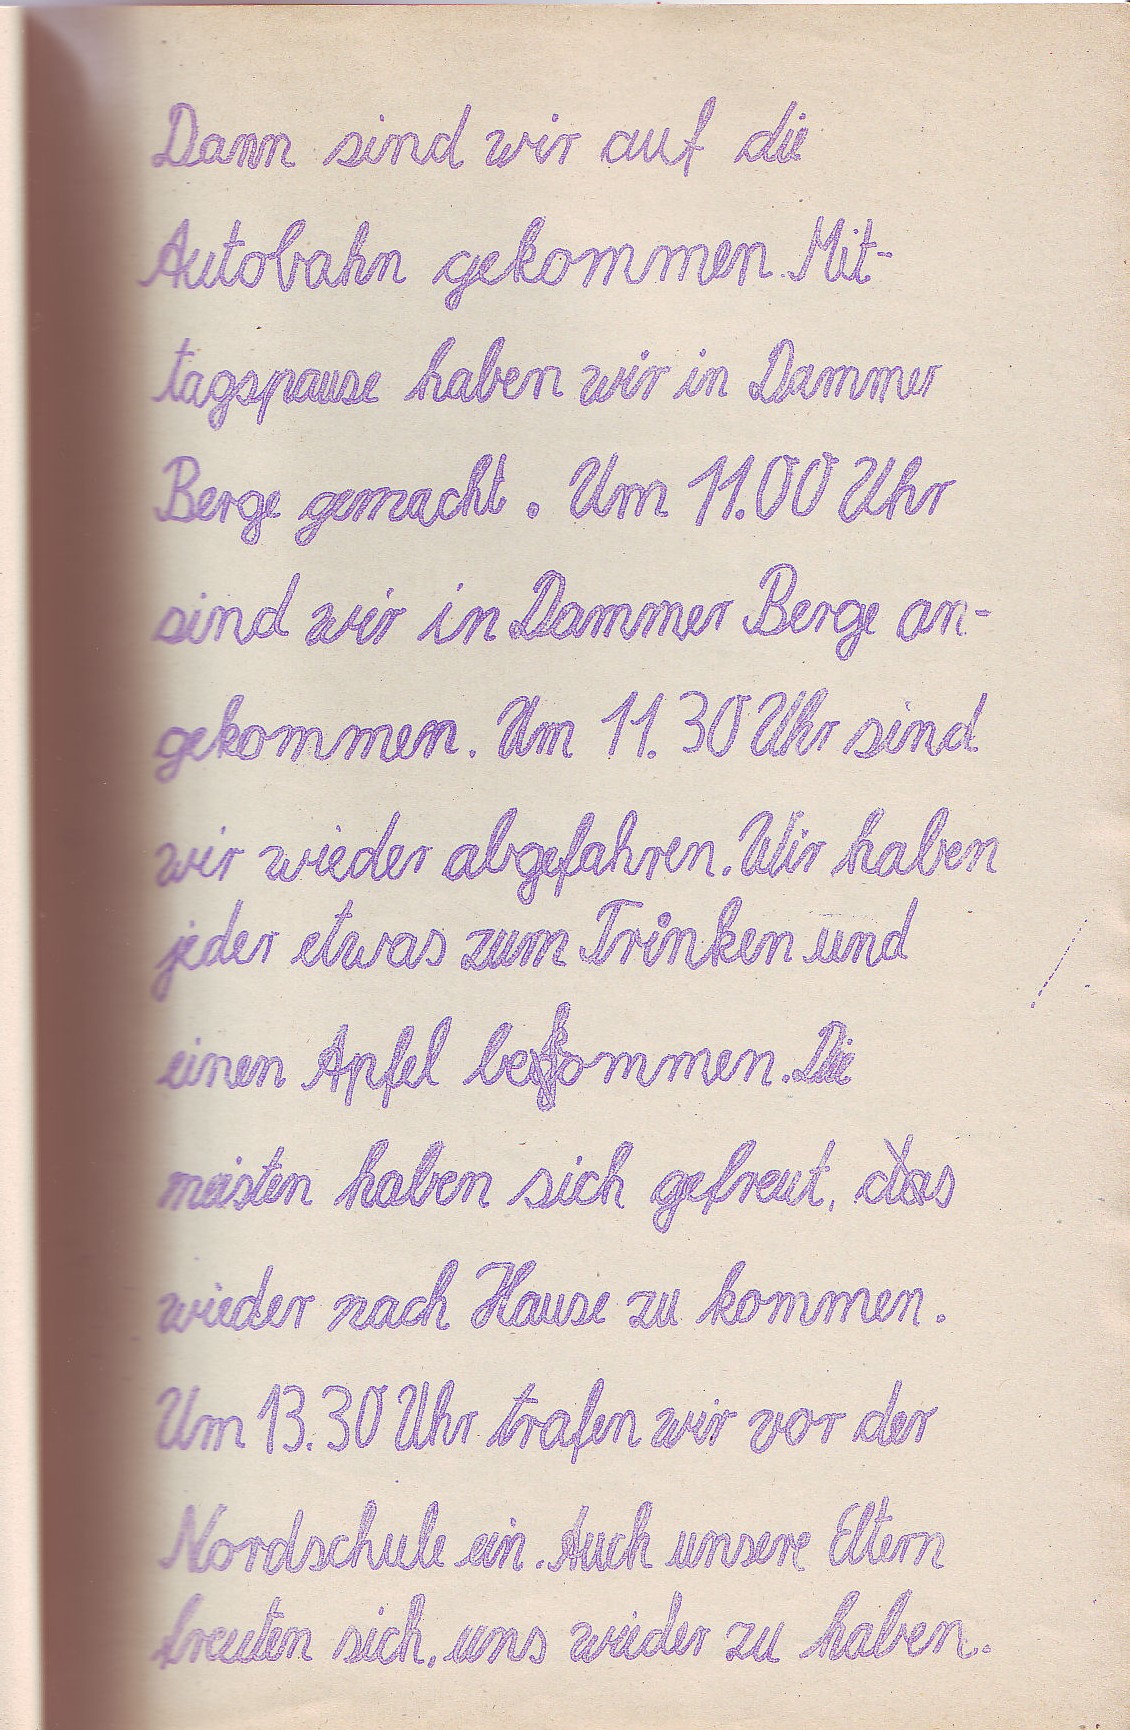 Dann sind wir auf die
Autobahn gekommen. Mit-
tagspause haben wir in Dammer
Berge gemacht. Um 11.00 Uhr
sind wir in Dammer Berge an-
gekommen. Um 11.30 Uhr sind
wir wieder abgefahren. Wir haben
jeder etwas zum Trinken und
einen Apfel bekommen. Die
meisten haben sich gefreut,
wieder nach Hause zu kommen.
Um 13.30 Uhr trafen wir vor der
Nordschule ein. Auch unsere Eltern
freuten sich, uns wieder zu haben.